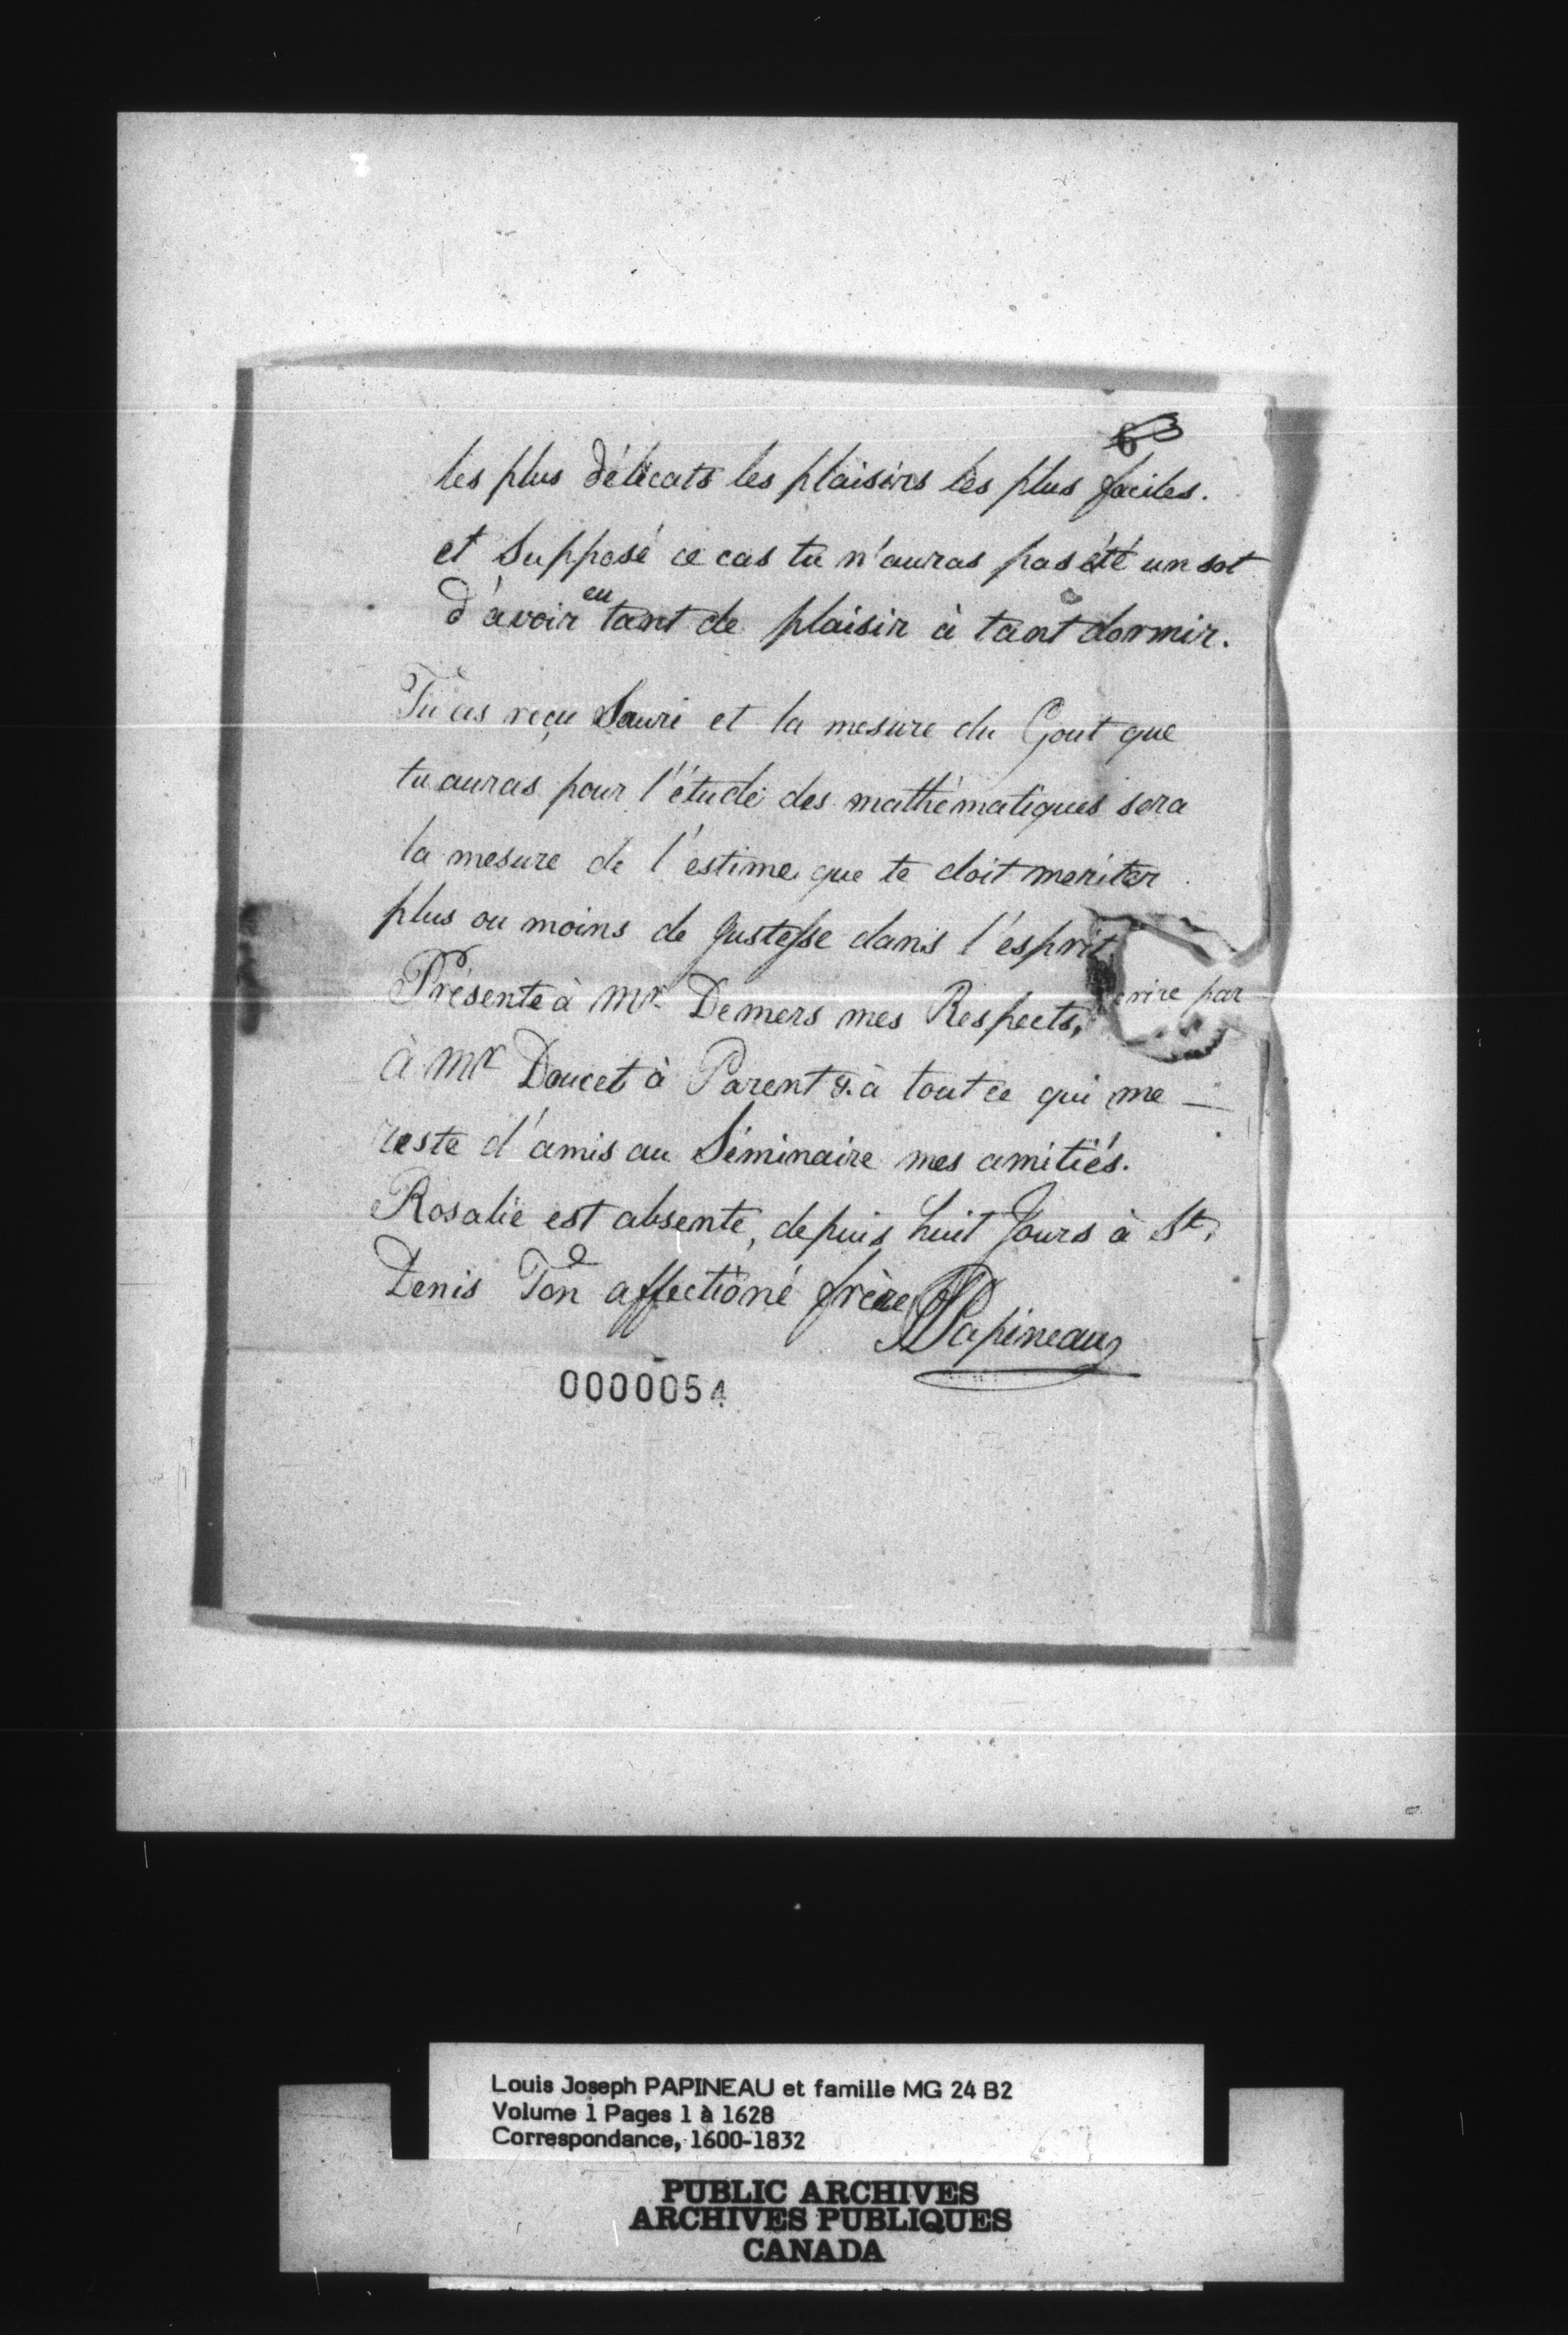 63
les plus délicats les plaisirs les plus faciles.
et supposé ce cas tu n'auras pas été un sot
d'avoir eu tant de plaisir à tant dormir.
Tu as reçu Sauri et la mesure du Gout que
tu auras pour l'étude des mathématiques sera
la mesure de l'estime que te doit meriter
plus ou moins de Justesse dans l'esprit
Présente à Mr Demers mes Respects,
par
à Mr Doucet à Parent & à tout ce qui me
reste d'amis au Séminaire mes amitiés.
Rosalie est absente, depuis huit Jours à St.
Denis Ton affectioné frère
Papineau
0000054
Louis Joseph PAPINEAU et famille MG 24 B2
Volume 1 Pages 1 à 1628
Correspondance, 1600-1832
PUBLIC ARCHIVES
ARCHIVES PUBLIQUES
CANADA